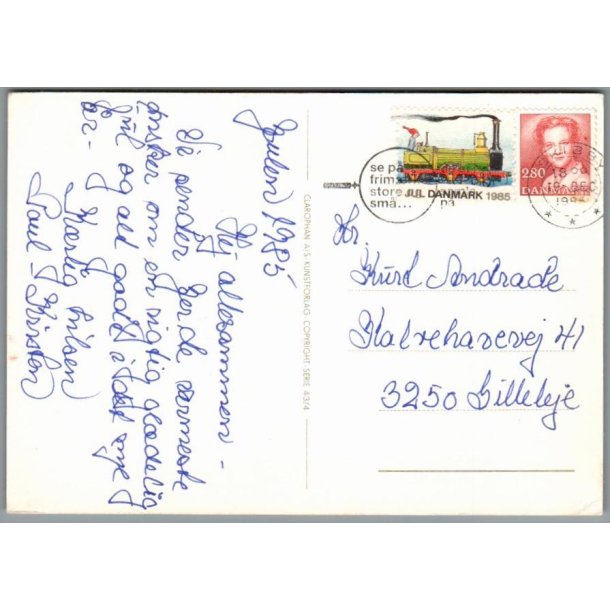 Julen 1985
Hej allesammen -
Vi sender Jer de varmeste
ønsker om en rigtig glædelig
jul og alt godt i det nye
år.
Kærlig hilsen
Poul - Kirsten
CLAROPHAN A/S. KUNSTFORLAG. COPYRIGHT. SERIE 43/4
se på
frim
store
små...
på
JUL DANMARK 1985
2.80
DANMARK
18
Hr.
Kurd Andrade
Kalrehavevej 41
3250 Gilleleje